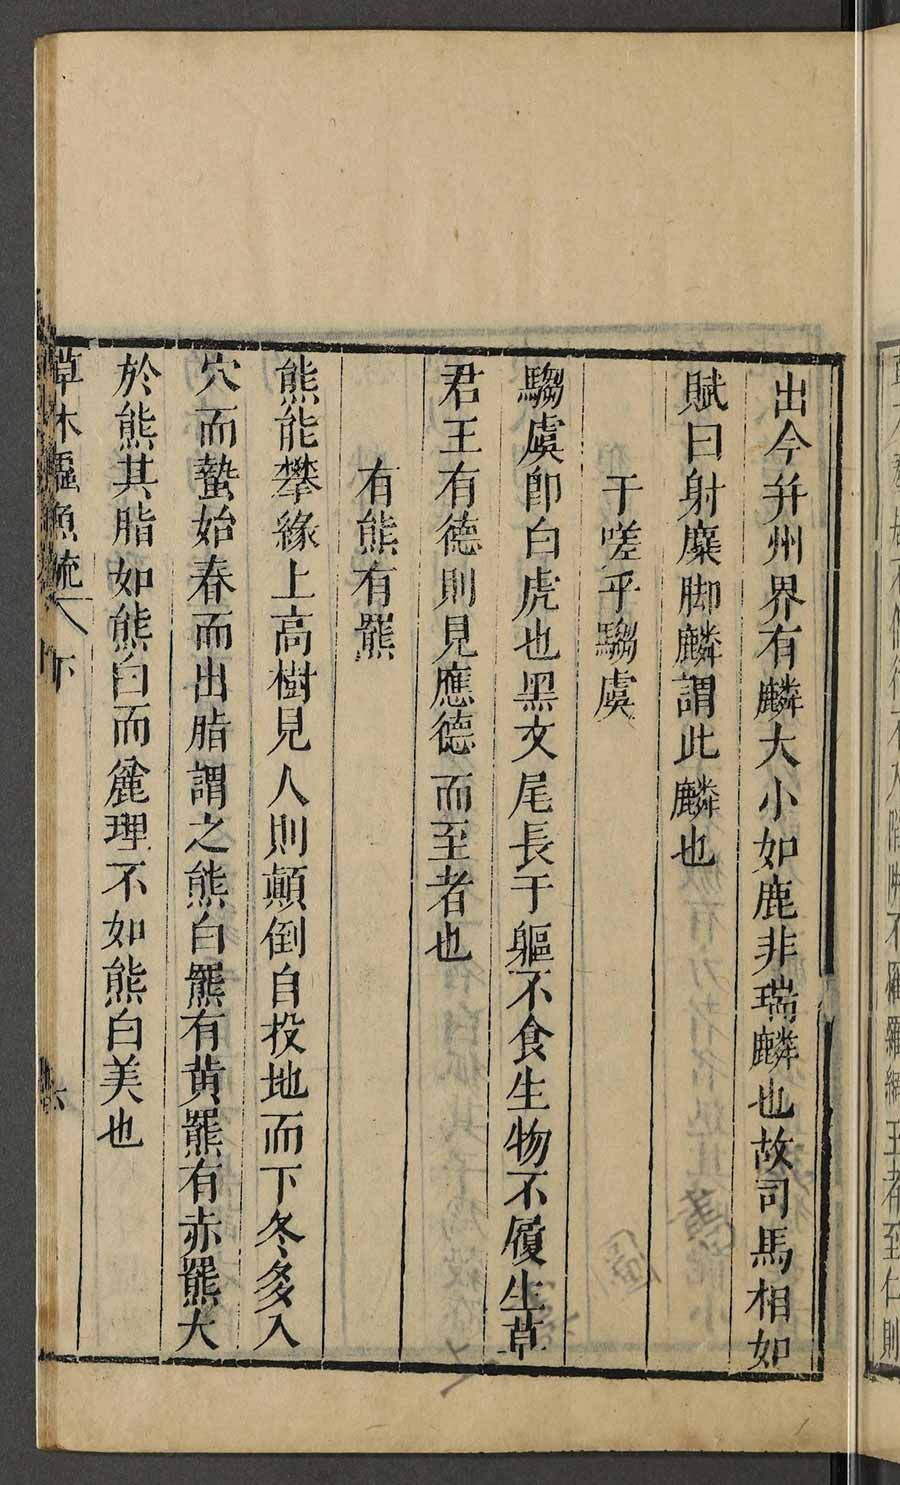 出今幷州界有麟大小如鹿非瑞麟也故司馬相如
賦曰射麋脚麟謂此麟也
于嗟乎騶虞
騶虞卽白虎也黑文尾長于軀不食生物不履生草
君王有德則見應德而至者也
有熊有羆
熊能攀緣上高樹見人則顛倒自投地而下冬多入
穴而蟄始春而出脂謂之熊白羆有黄羆有赤羆大
於熊其脂如熊白而麄理不如熊白美也
草木蟲魚疏 下 六